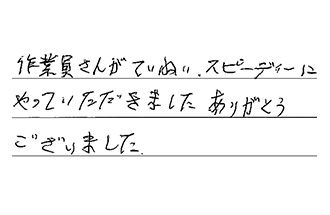 作業員さんがていねい、スピーディーに
やっていただきました ありがとう
ございました.